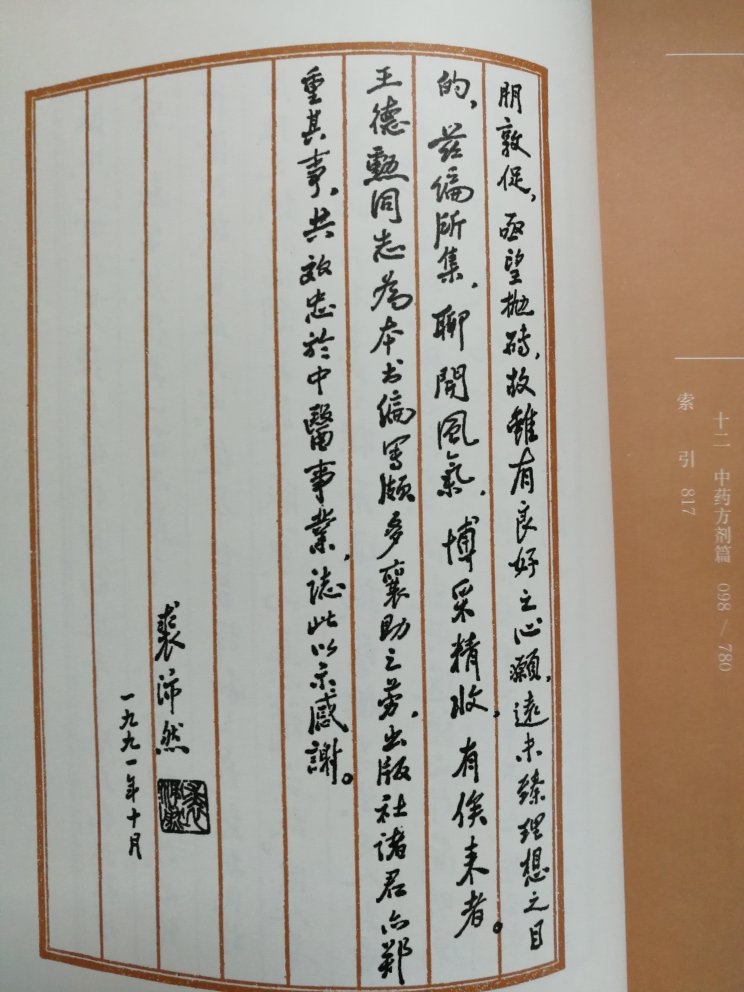 朋敦促,亟望抛磚,故雖有良好之心願,遠未臻理想之目
的,茲编所集,聊開風氣,博采精收,有俟来者。
王德勲同志為本书编写颇多襄助之劳,出版社諸君亦鄭
重其事,共效忠於中醫事業,誌此以示感謝。
裘沛然
一九九一年十月
十二 中药方剂篇 098 / 780
索引 817